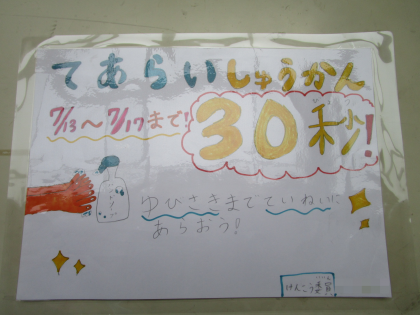 てあらいしゅうかん
7/13〜7/17まで!
30秒!
ゆびさきまでていねいに
あらおう!
けんこう委員